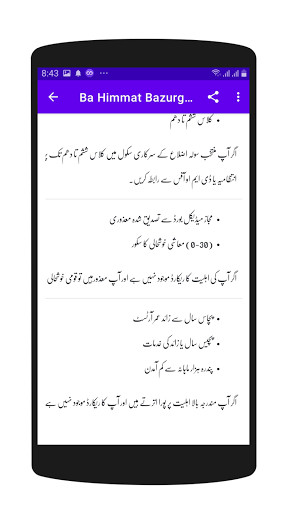 8:43
Ba Himmat Bazurg...
کلاس ششم تا دهم
اگر آپ منتخب سولہ اضلاع کے سرکاری سکول میں کلاس ششم تا دہم تک پڑ
انتظامیہ یا ڈی ایم او آفس سے رابطہ کریں۔
مجاز میڈیکل بورڈ سے تصدیق شدہ معذوری
(0-30) معاشی خوشحالی کا سکور
اگر آپ کی اہلیت کا ریکارڈ موجود نہیں ہے اور آپ معذور ہیں تو قومی خوشحالی
پچاس سال سے زائد عمر آرٹسٹ
پچیس سال یا زائد کی خدمات
پندرہ ہزار ماہانہ سے کم آمدن
اگر آپ مندرجہ بالا اہلیت پر پورا اترتے ہیں اور آپ کا ریکارڈ موجود نہیں ہے